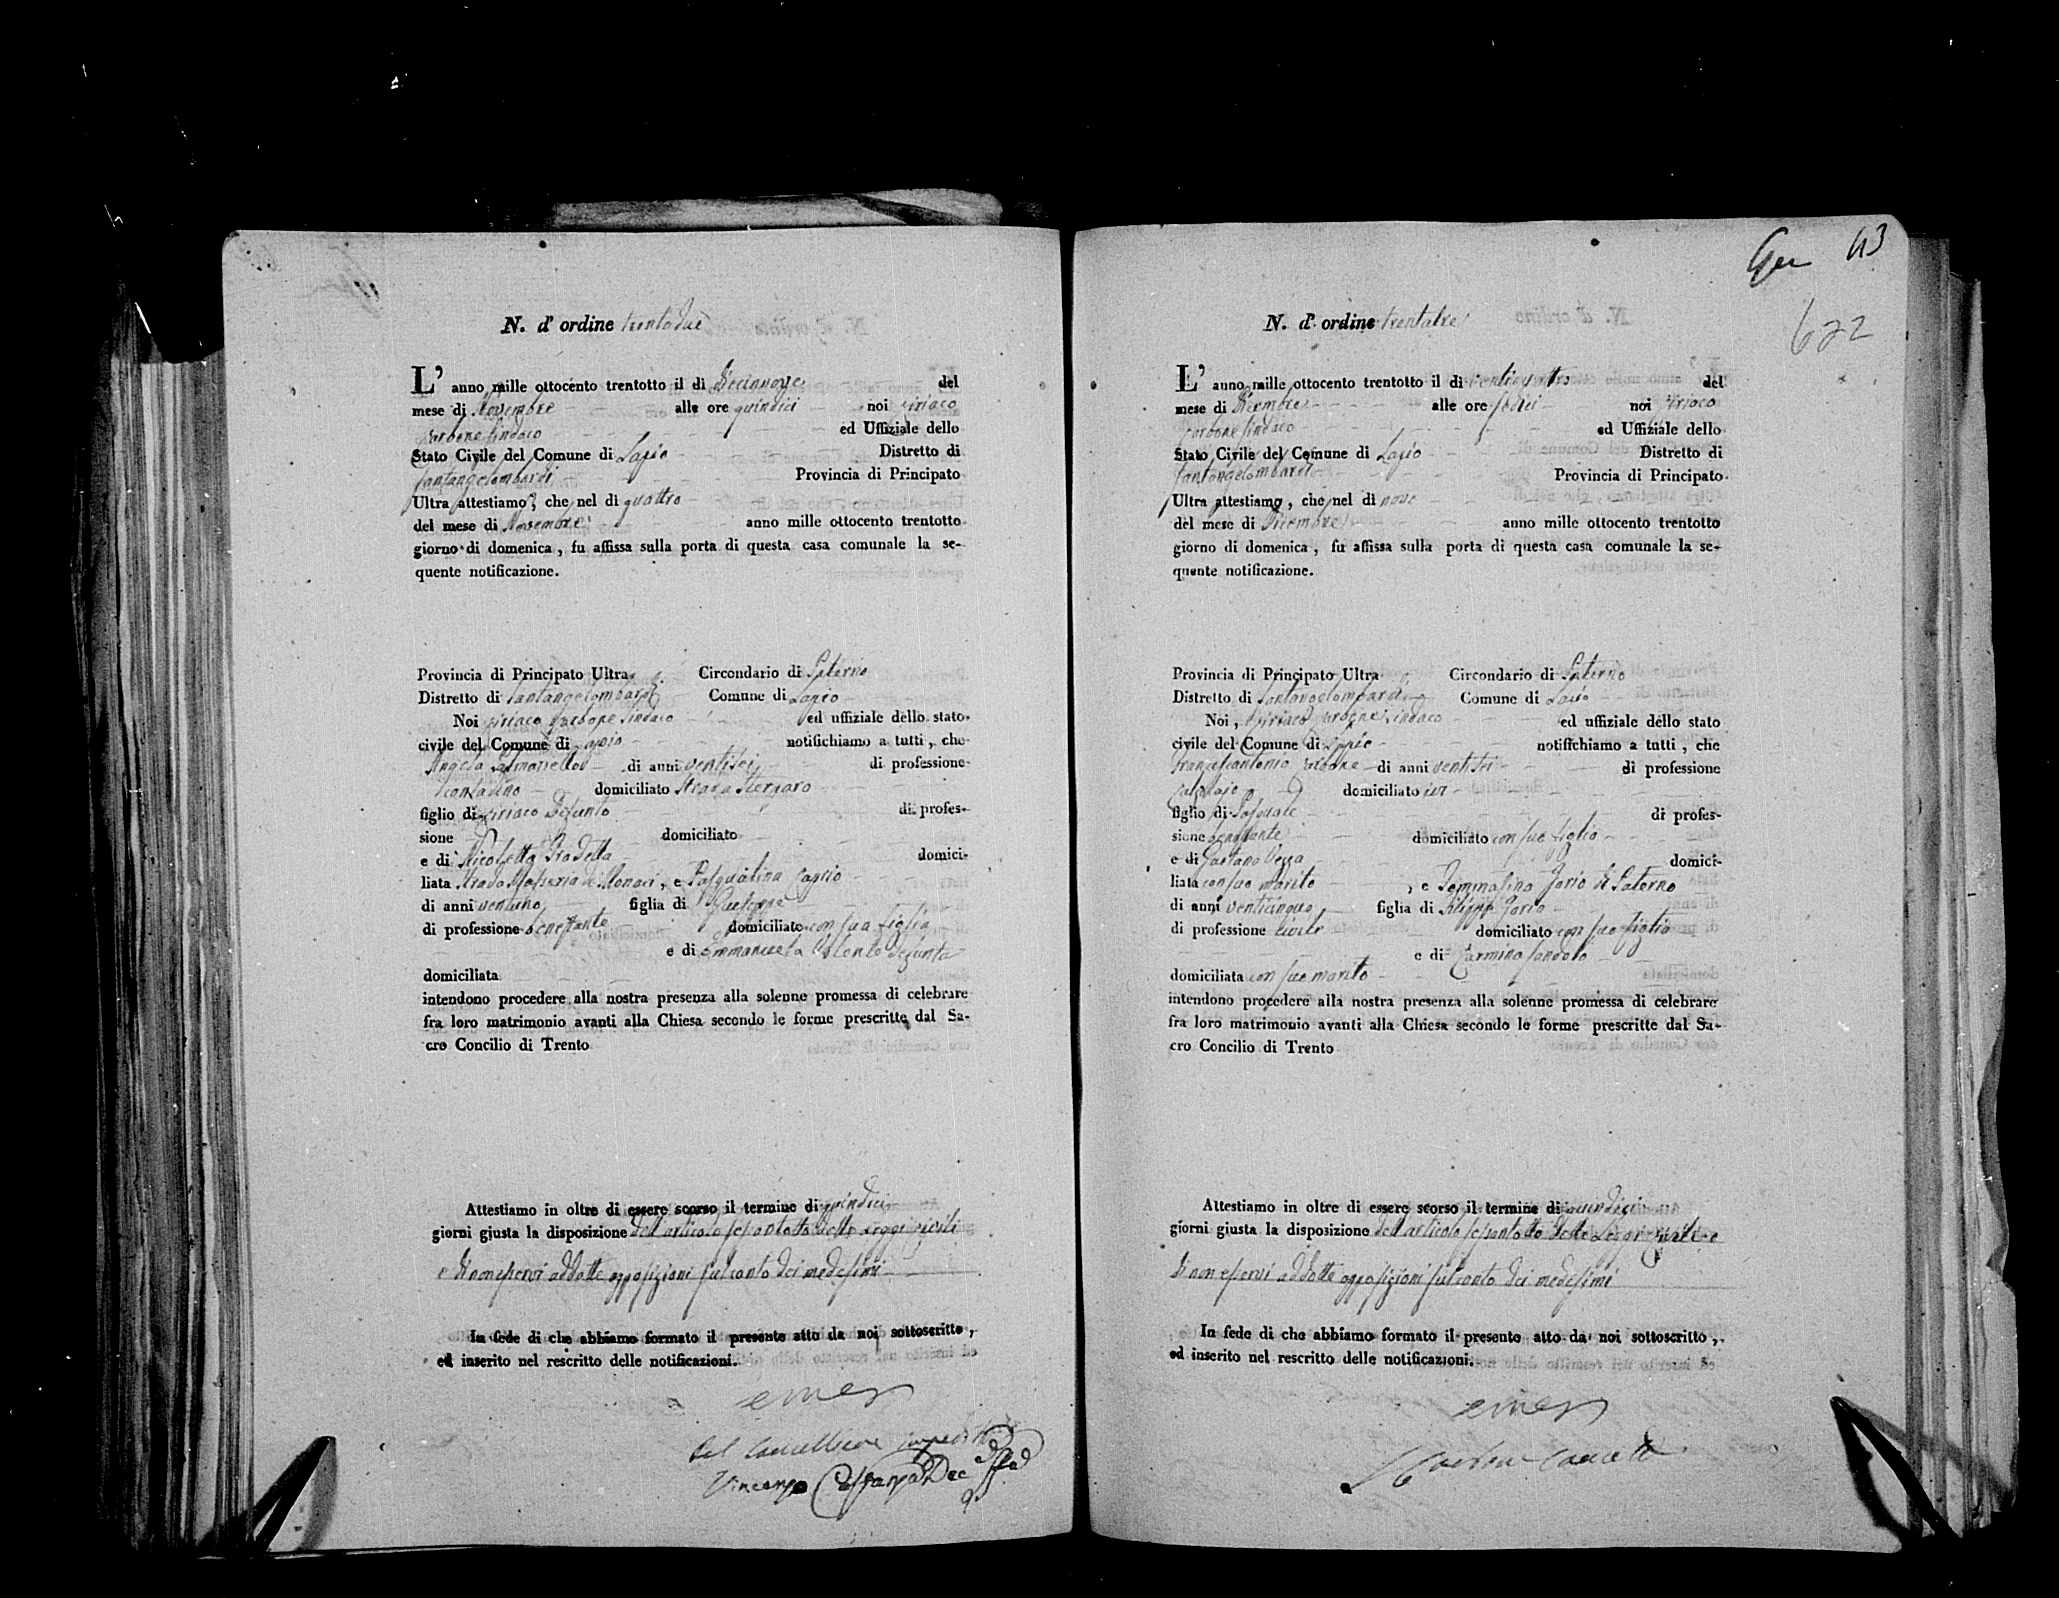 N. d' ordine trentadue
L' anno mille ottocento trentotto il dì Diecinnove del
mese di Novembre alle ore quindici noi Ciriaco
Carbone Sindaco ed Uffiziale dello
Stato Civile del Comune di Lapio Distretto di
Santangelombardi Provincia di Principato
Ultra attestiamo, che nel dì quattro
del mese di Novembre anno mille ottocento trentotto
giorno di domenica, fu affissa sulla porta di questa casa comunale la se-
quente notificazione.
Provincia di Principato Ultra Circondario di Paterno
Distretto di Santangelombardi Comune di Lapio
Noi Ciriaco Carbone Sindaco ed uffiziale dello stato
civile del Comune di Lapio notifichiamo a tutti, che
Angelo di anni ventisei di professione
Contadino domiciliato Strada
figlio di Ciriaco Defunto di profes-
sione domiciliato
e di Nicoletta domici-
liata Strada Masseria di Monaci, e Pasqualina Caprio
di anni ventuno figlia di Giuseppe
di professione benestante domiciliato con sua figlia
e di Emmanuela Defunta
domiciliata
intendono procedere alla nostra presenza alla solenne promessa di celebrare
fra loro matrimonio avanti alla Chiesa secondo le forme prescritte dal Sa-
cro Concilio di Trento
Attestiamo in oltre di essere scorso il termine di quindici
giorni giusta la disposizione dell'articolo sessantotto delle Leggi Civili
e di non esservi addotte opposizioni sul conto dei medesimi
In fede di che abbiamo formato il presente atto da noi sottoscritto,
ed inserito nel rescritto delle notificazioni.
Del Cancelliere impedito
Vincenzo
Gen 43
622
N. d' ordine trentatre
L' anno mille ottocento trentotto il dì ventiquattro del
mese di Dicembre alle ore sedici noi Ciriaco
Carbone Sindaco ed Uffiziale dello
Stato Civile del Comune di Lapio Distretto di
Santangelombardi Provincia di Principato
Ultra attestiamo, che nel dì nove
del mese di Dicembre anno mille ottocento trentotto
giorno di domenica, fu affissa sulla porta di questa casa comunale la se-
quente notificazione.
Provincia di Principato Ultra Circondario di Paterno
Distretto di Santangelombardi Comune di Lapio
Noi, Ciriaco Carbone Sindaco ed uffiziale dello stato
civile del Comune di Lapio notifichiamo a tutti, che
Francescantonio Carbone di anni ventisei di professione
domiciliato ivi
figlio di Pasquale di profes-
sione benestante domiciliato con suo figlio
e di Gaetana domici-
liata con suo marito, e Tommasina Jorio di Paterno
di anni venticinque figlia di Filippo Jorio
di professione civile domiciliato con sua figlia
e di Carmina Sandoli
domiciliata con suo marito
intendono procedere alla nostra presenza alla solenne promessa di celebrare
fra loro matrimonio avanti alla Chiesa secondo le forme prescritte dal Sa-
cro Concilio di Trento
Attestiamo in oltre di essere scorso il termine di quindici
giorni giusta la disposizione dell'articolo sessantotto delle Leggi Civili e
di non esservi addotte opposizioni sul conto dei medesimi
In fede di che abbiamo formato il presente atto da noi sottoscritto,
ed inserito nel rescritto delle notificazioni.